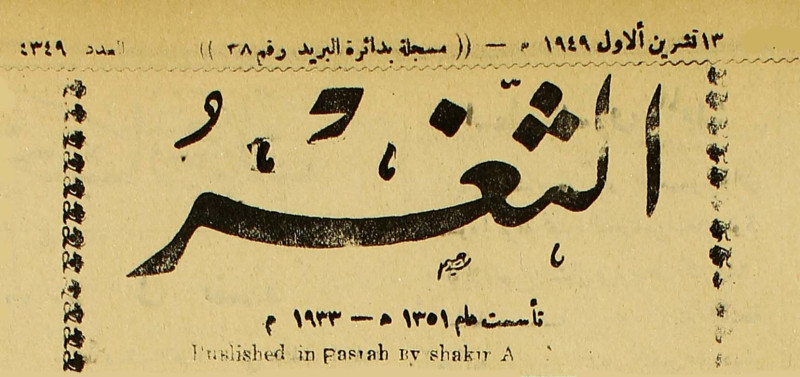 ١٣ تشرين ألاول ١٩٤٩ م — (( مسجلة بدائرة البريد رقم ٣٨ )) العدد ٤٣٤٩
الثَّغْرُ
تأسست عام ١٣٥١ ه — ١٩٣٣ م
in Basrah By shakir A